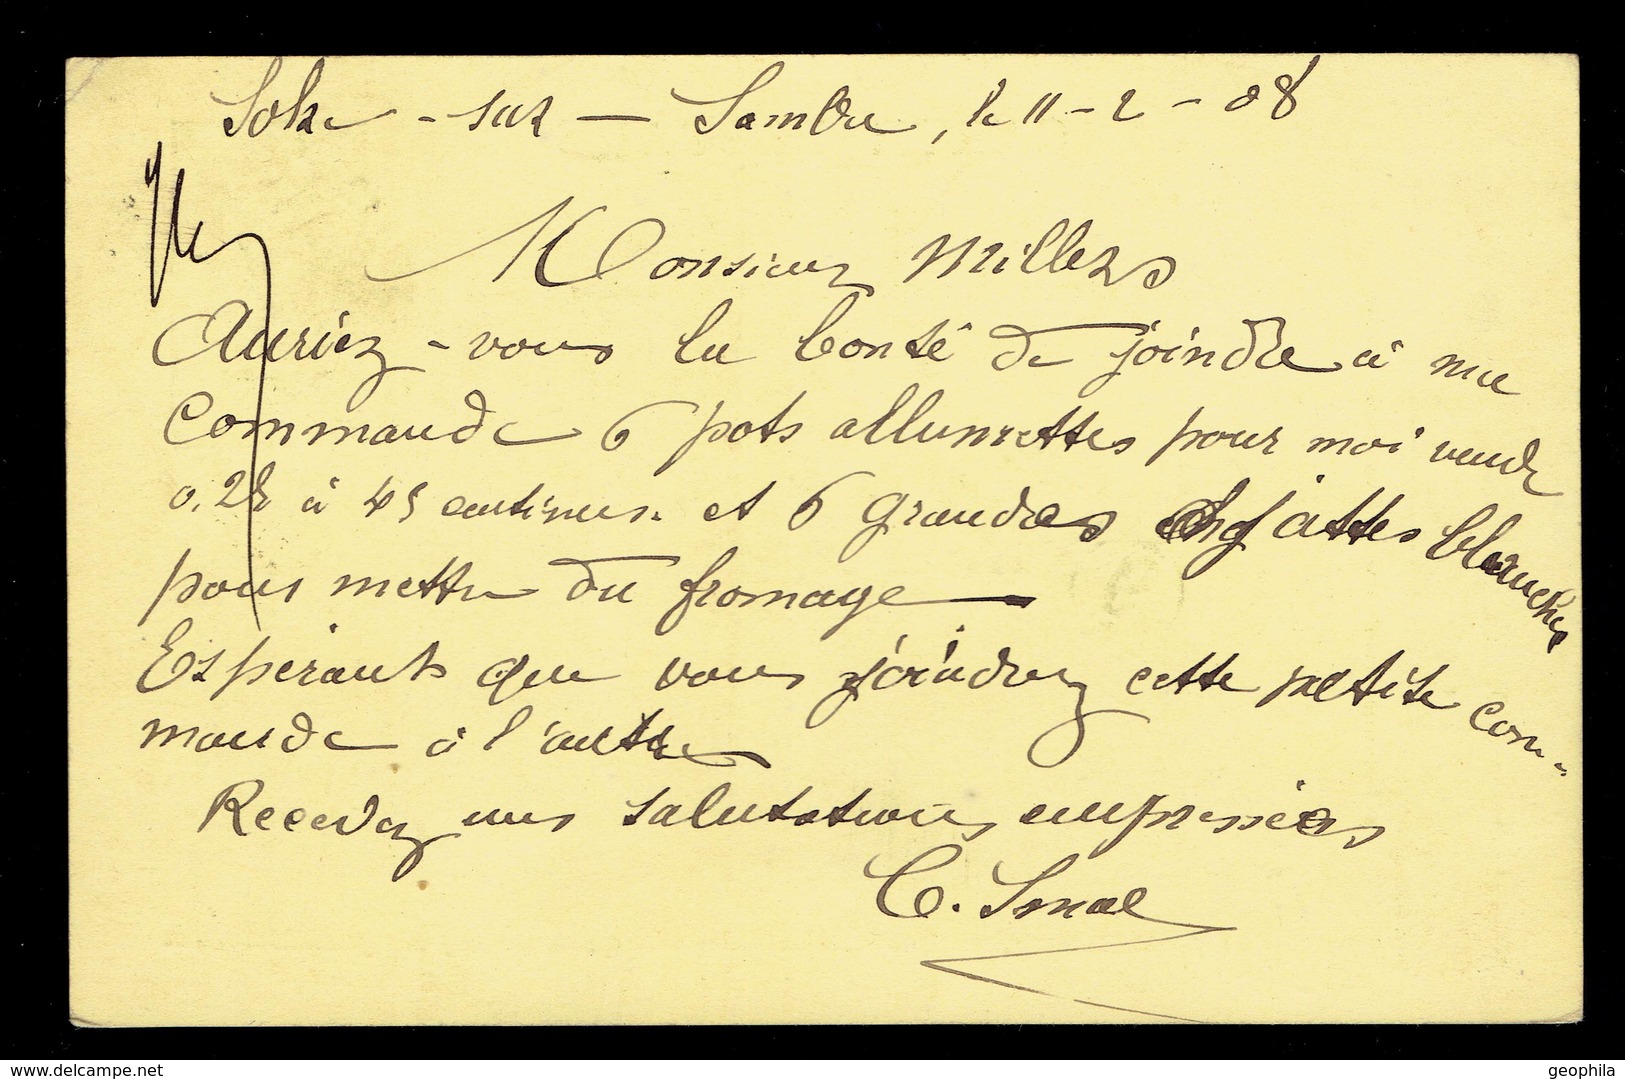 Solre - sur - Sambre, le 11 - 2 - 08
Monsieur Millers
Auriez - vous la bonté de joindre à ma
commande 6 pots allumettes pour moi vendre
0.25 à 45 centimes. et 6 grandes jattes blanches
pour mettre du fromage
Espérant que vous joindrez cette petite com-
mande à l'autre
Recevez mes salutations empressées
C. Smal
delcampe.net
geophila